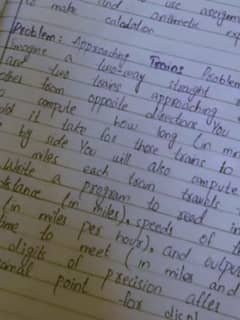 use assignm
to make and arithmetic exp
calculation
Problem: Approaching Trains Problem
Imagine a two-way straight
and two trains approaching
other from opposite directions You
to compute how long (in min
ld it take for those trains to
by side You will also compute
miles each train travels
Write a program to read in
distance (in miles), speeds of t
(in miles per hour), and outpu
time to meet (in miles and
digits of precision after
mal point for displ